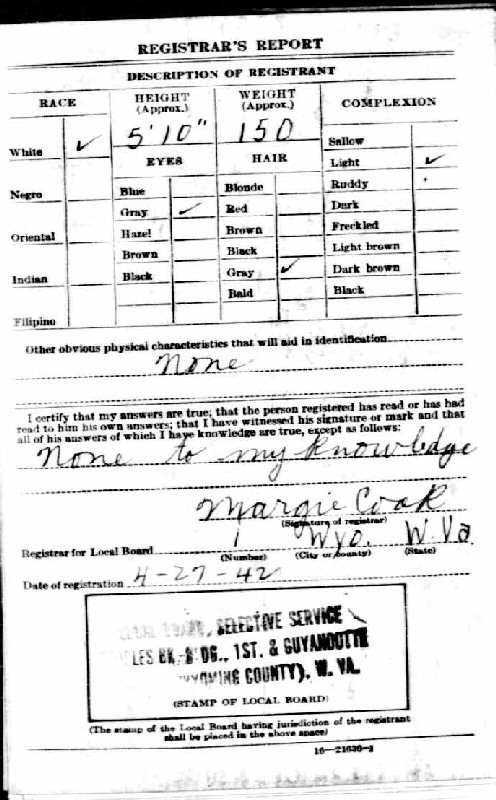 REGISTRAR'S REPORT
DESCRIPTION OF REGISTRANT
RACE
HEIGHT (Approx.)
WEIGHT (Approx.)
COMPLEXION
5'10"
150
White ✓
Sallow
EYES
HAIR
Light ✓
Negro
Blue
Blonde
Ruddy
Gray ✓
Red
Dark
Oriental
Hazel
Brown
Freckled
Brown
Black
Light brown
Indian
Black
Gray ✓
Dark brown
Bald
Black
Filipino
Other obvious physical characteristics that will aid in identification
None
I certify that my answers are true; that the person registered has read or has had
read to him his own answers; that I have witnessed his signature or mark and that
all of his answers of which I have knowledge are true, except as follows:
None to my knowledge
Margie Cook
(Signature of registrar)
Registrar for Local Board 1 Wyo. W Va
(Number) (City or county) (State)
Date of registration 4-27-42
SELECTIVE SERVICE
1ST. & GUYANDOTTE
WYOMING COUNTY), W. VA.
(STAMP OF LOCAL BOARD)
(The stamp of the Local Board having jurisdiction of the registrant
shall be placed in the above space)
16-21630-1